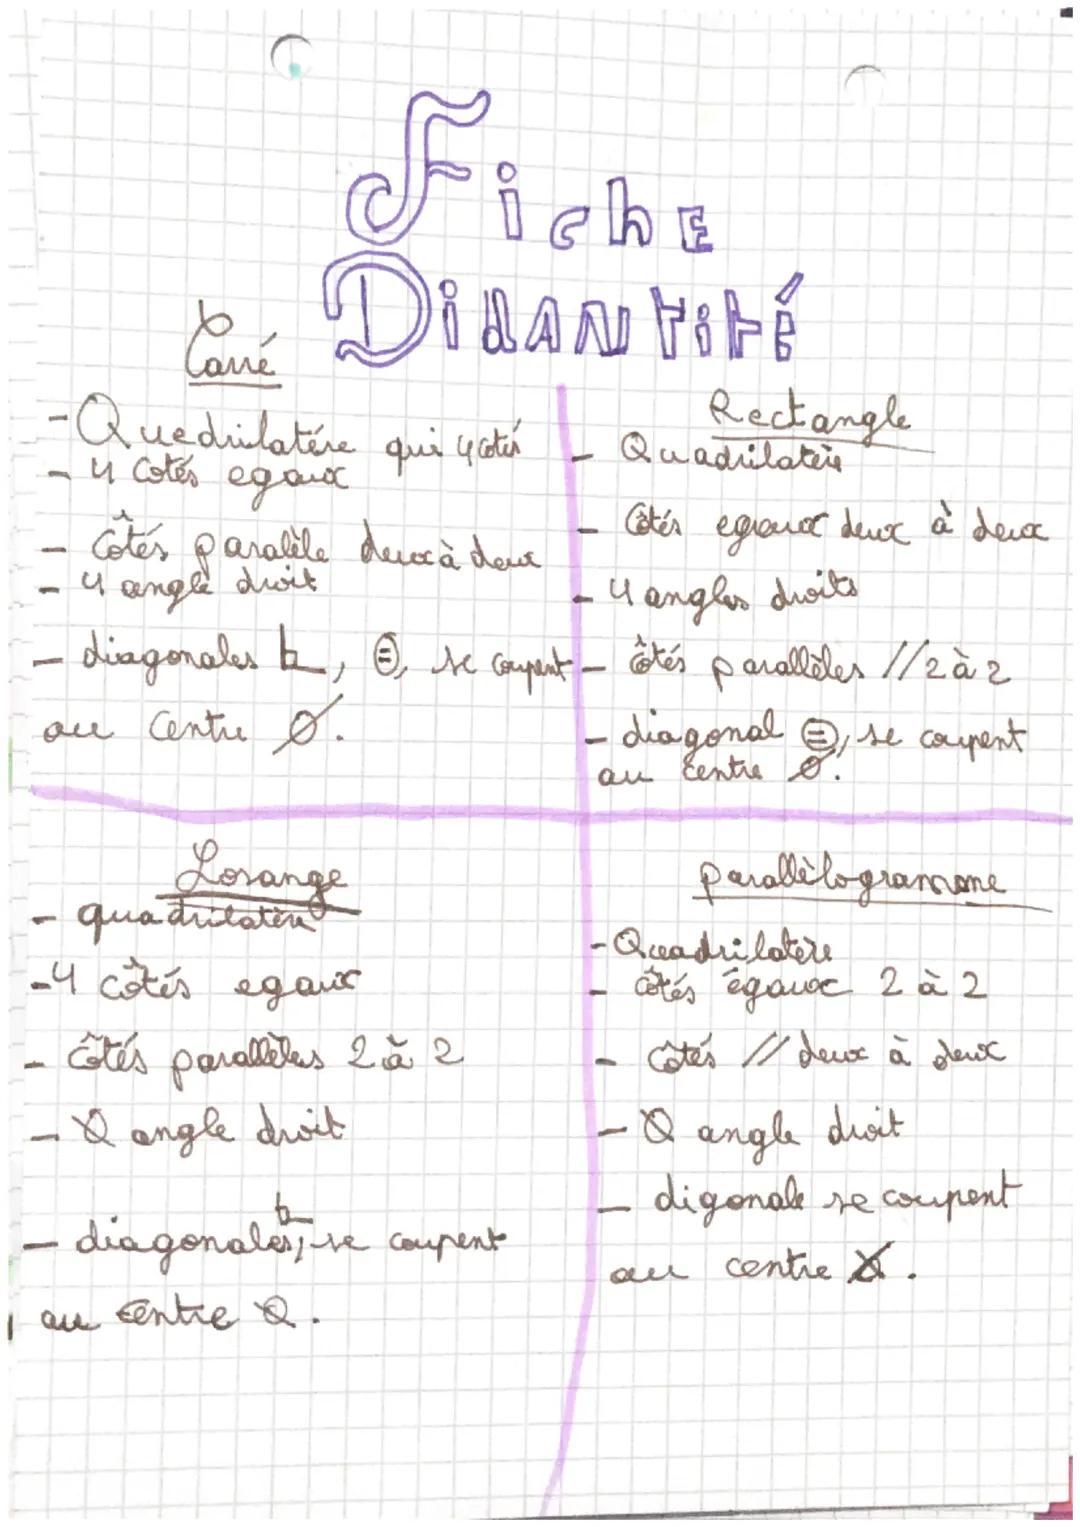 Fiche
Didantité
Carré
- Quedrilatére qui 4 cotés
- 4 Cotés egaux
- Côtés paralèle deux à deux
- 4 angle droit
- diagonales ⊥, ⊜, se coupent
au Centre Ø.
Rectangle
- Quadrilatère
- Côtés egaux deux à deux
- 4 angles droits
- côtés parallèles // 2 à 2
- diagonal ⊜, se coupent
au centre Ø.
Losange
- quadrilatère
- 4 côtés egaux
- côtés parallèles 2 à 2
- Ø angle droit
- diagonales, ⊥ se coupent
au centre Ø.
parallèlogramme
- Quadrilatère
- côtés égaux 2 à 2
- côtés // deux à deux
- Ø angle droit
- digonale se coupent
au centre Ø.